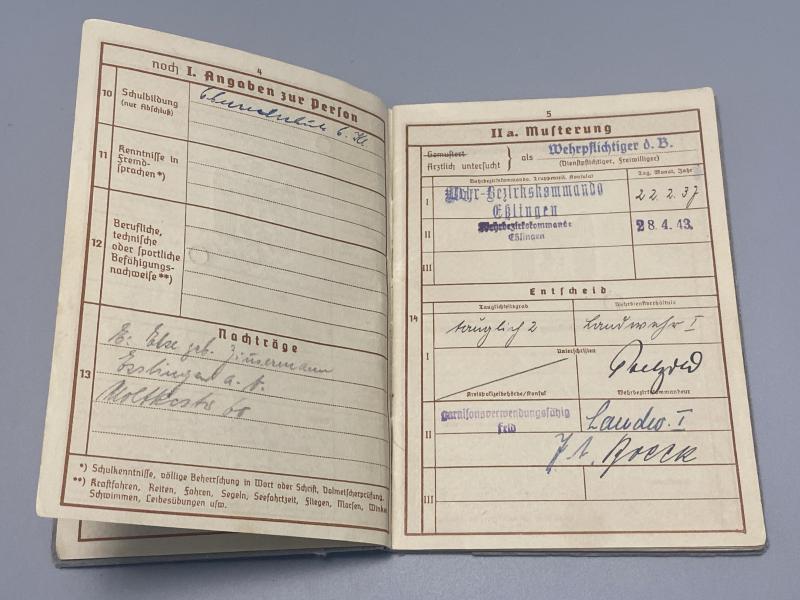 4
noch I. Angaben zur Person
10 Schulbildung
(nur Abschluß)
11 Kenntnisse in
Fremd-
sprachen*)
12 Berufliche,
technische
oder sportliche
Befähigungs-
nachweise**)
Nachträge
13
E: Else geb.
Esslingen a. N.
Moltkestr 60
*) Schulkenntnisse, völlige Beherrschung in Wort oder Schrift, Dolmetscherprüfung.
**) Kraftfahren, Reiten, Fahren, Segeln, Seefahrtzeit, Fliegen, Morsen, Winke
Schwimmen, Leibesübungen usw.
5
IIa. Musterung
Gemustert
Ärztlich untersucht } als Wehrpflichtiger d. B.
(Dienstpflichtiger, Freiwilliger)
Wehrbezirkskommando, Truppenteil, Konsulat
Tag, Monat, Jahr
I Wehr-Bezirkskommando
Eßlingen
22.2.37
II Wehrbezirkskommando
Eßlingen
28.4.43.
III
Entscheid
14
Tauglichkeitsgrad
Wehrdienstverhältnis
I tauglich 2
Landwehr I
Unterschriften
Kreispolizeibehörde/Konsul
Wehrbezirkskommandeur
II Garnisonsverwendungsfähig
Feld
Landw. I
III